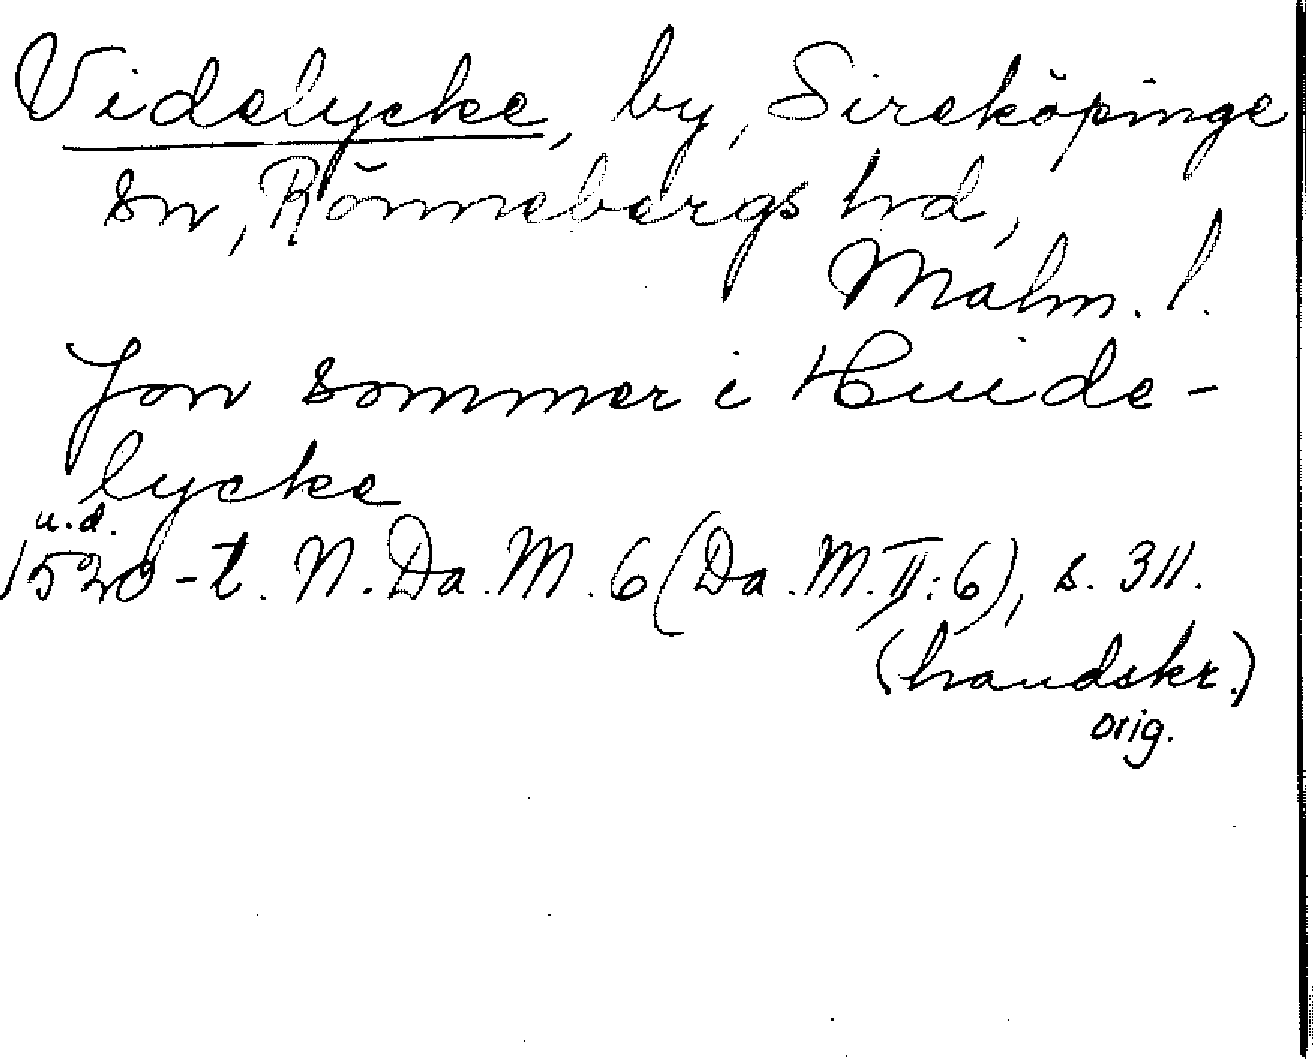 Videlycke, by, Sireköpinge
sn, Rönnebergs hd,
Malm. l.
Jon sommer i Huide-
lycke
u.d.
1520-t. N. Da. M. 6 (Da. M. II: 6), s. 311.
(handskr.)
orig.